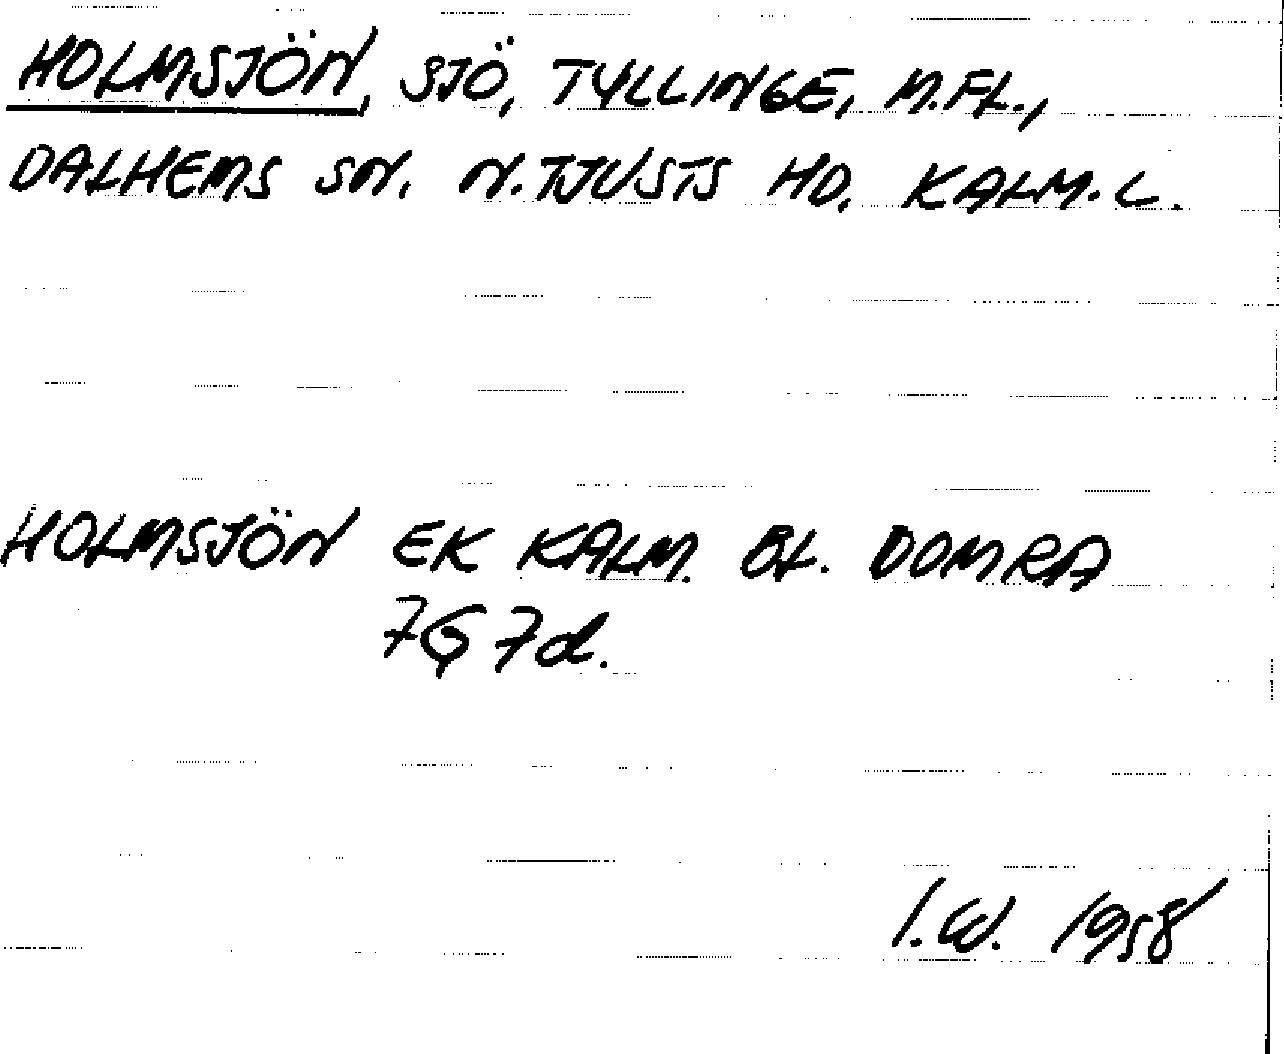 HOLMSJÖN, SJÖ, TYLLINGE, M.FL.,
DALHEMS SN. N.TJUSTS HD. KALM.L.
HOLMSJÖN EK KALM. BL. DOMRA
7G7d.
I.W. 1958